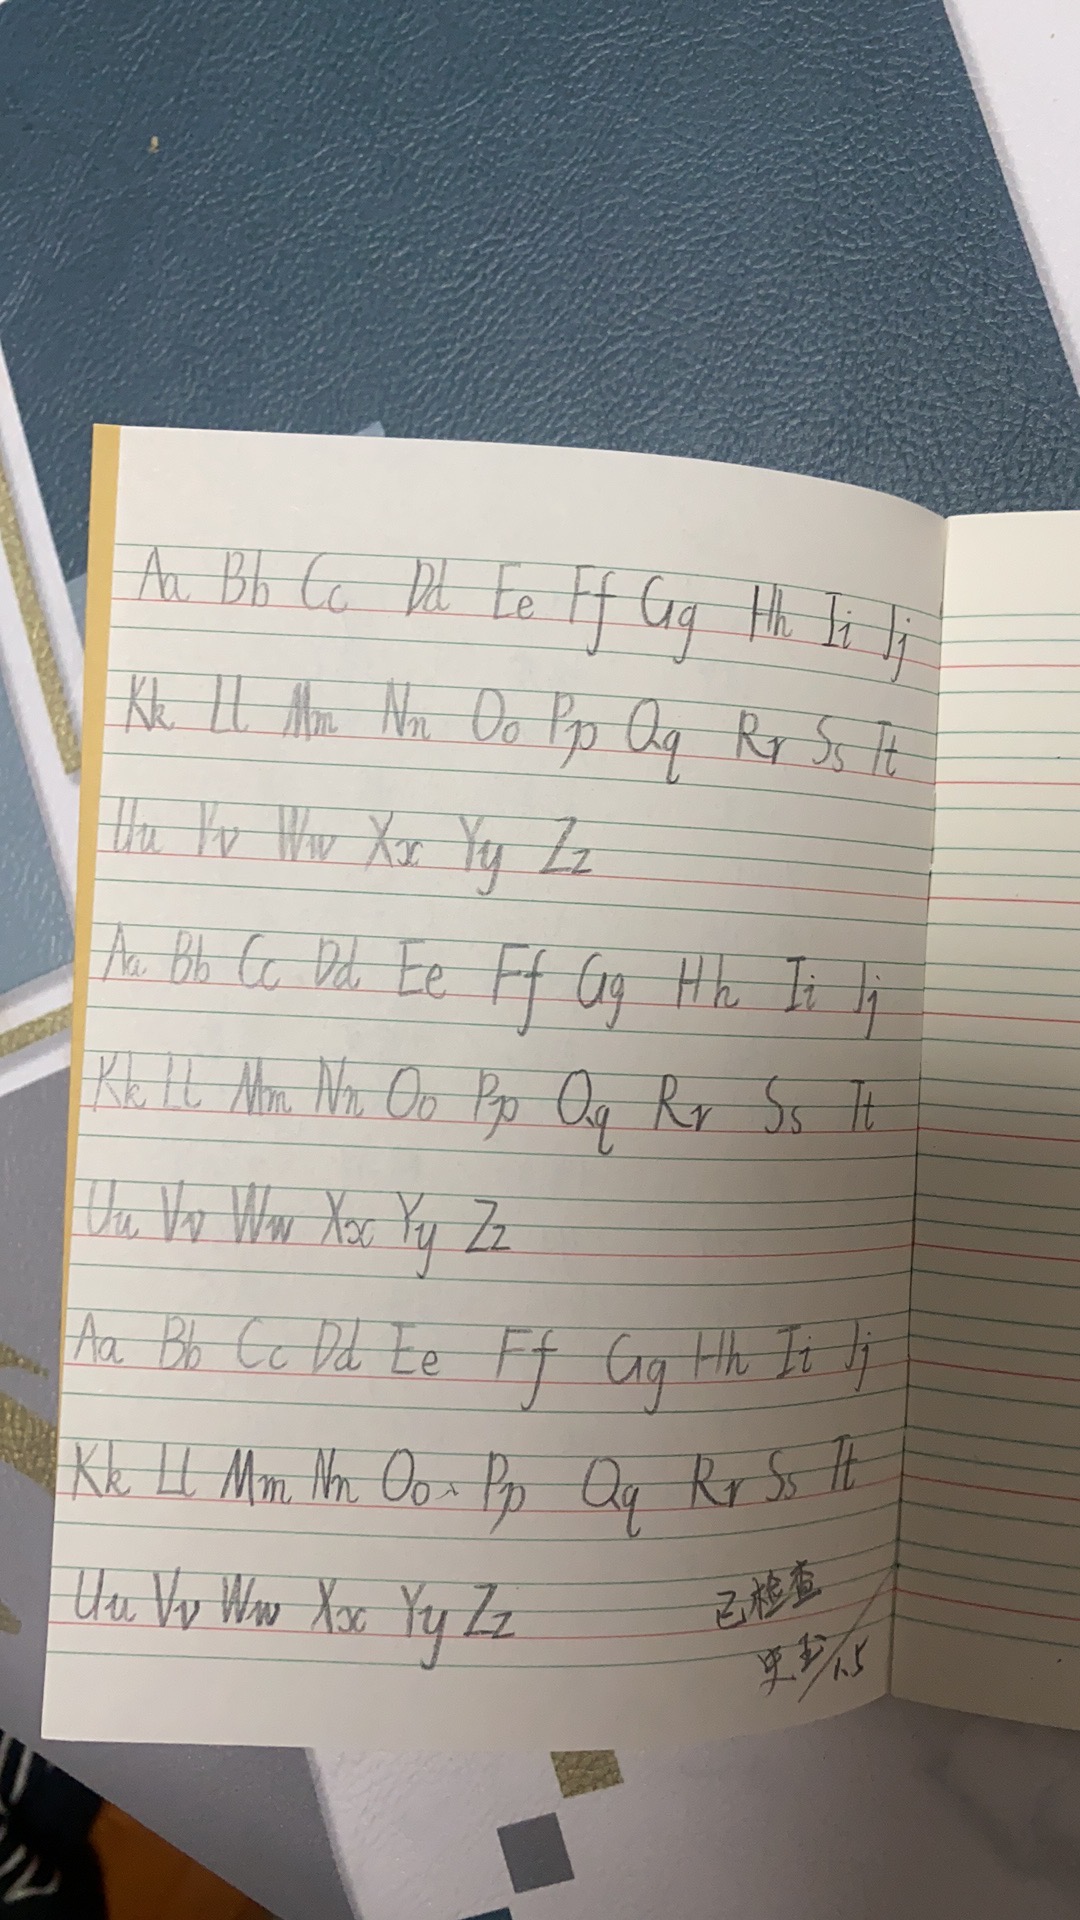 Aa Bb Cc Dd Ee Ff Gg Hh Ii Jj
Kk Ll Mm Nn Oo Pp Qq Rr Ss Tt
Uu Vv Ww Xx Yy Zz
Aa Bb Cc Dd Ee Ff Gg Hh Ii Jj
Kk Ll Mm Nn Oo Pp Qq Rr Ss Tt
Uu Vv Ww Xx Yy Zz
Aa Bb Cc Dd Ee Ff Gg Hh Ii Jj
Kk Ll Mm Nn Oo Pp Qq Rr Ss Tt
Uu Vv Ww Xx Yy Zz
已检查
1.5